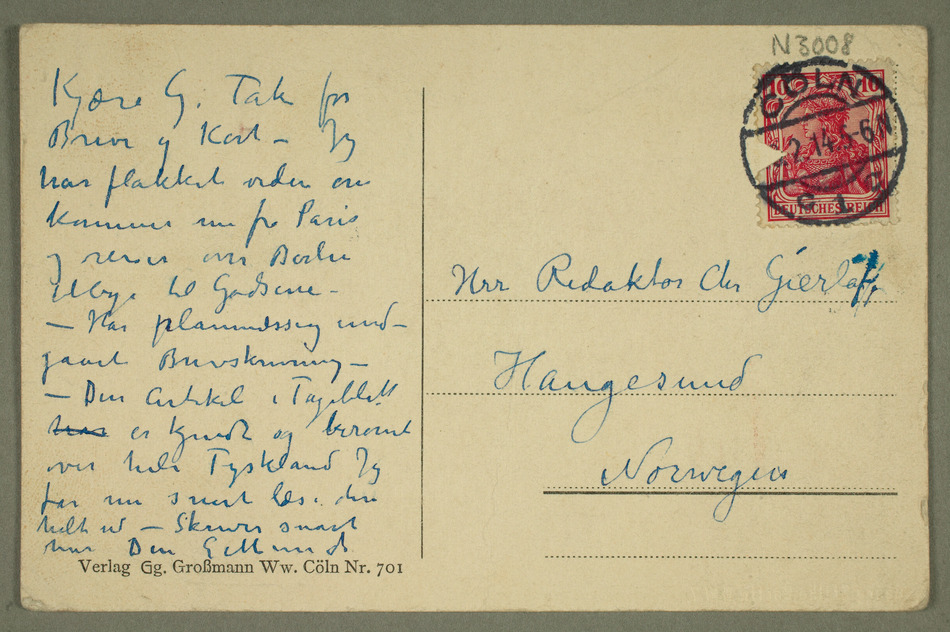 N 3008
CÖLN
2.14.5-6N
10 10
DEUTSCHES REICH
Kjære G. Tak for
Breve og Kort – Jeg
har flakket viden om
kommer nu fra Paris
og reiser over Berlin
tilbage til Godserne –
– Har planmæssig und–
gaaet Brevskrivning –
– Din Artikel i Tageblatt
er kjendt og berømt
over hele Tyskland Jeg
før nu snart læse den
helt ud – Skriver snart
Din
Verlag Gg. Großmann Ww. Cöln Nr. 701
Herr Redaktør Chr Gierløff,
Haugesund
Norwegen